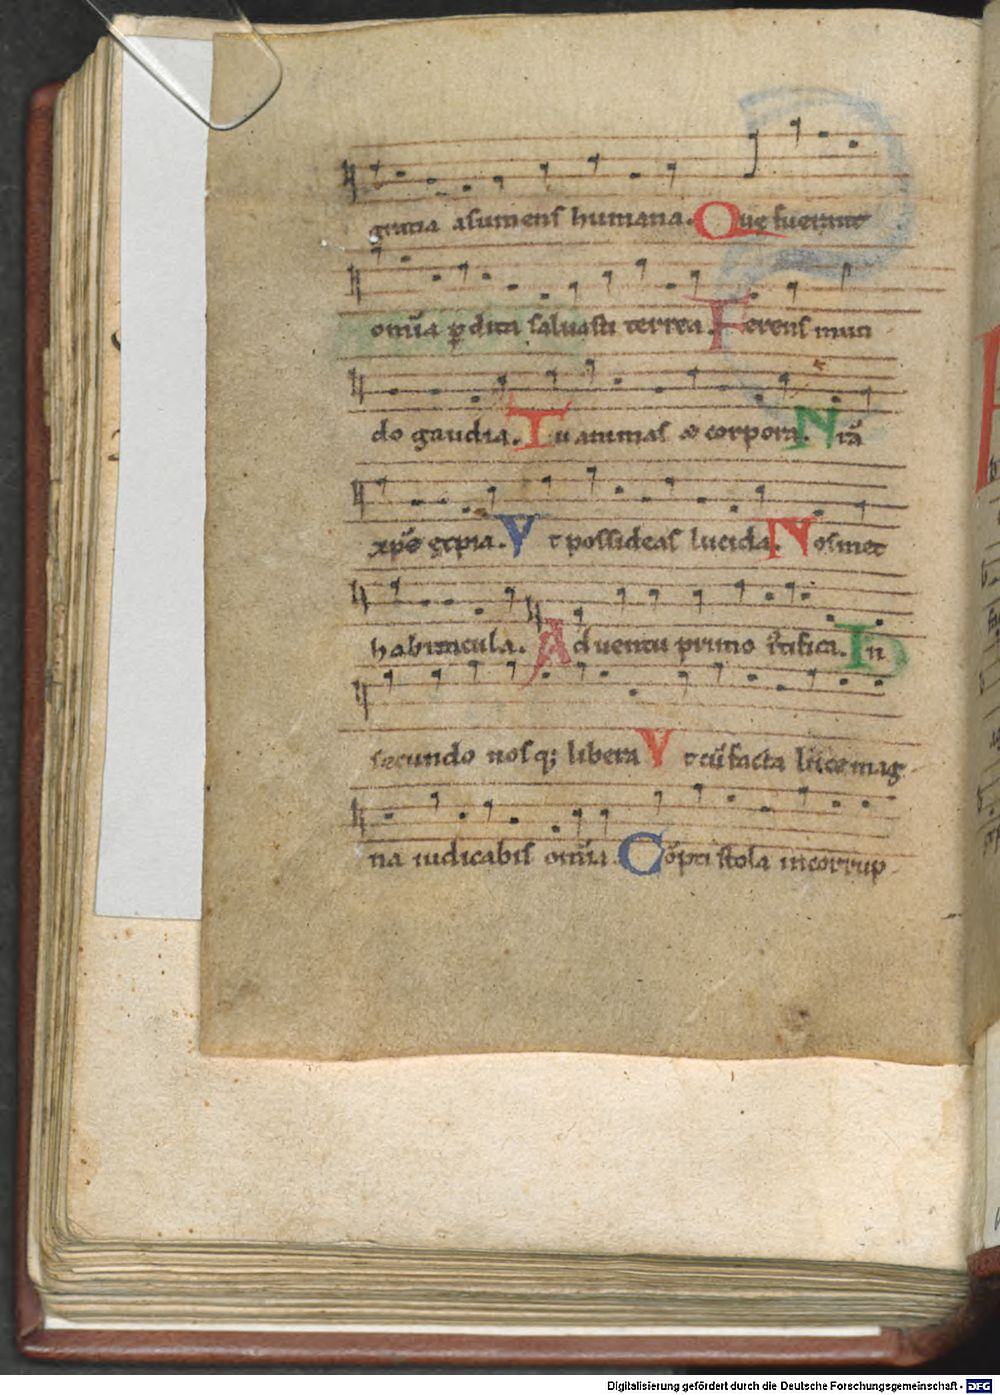 gratia asumens humana. Quę fuerant
om̄ia ꝑdita saluasti terrea. Ferens mun
do gaudia. Tu animas & corpora. Nr̄a
xp̄e expia. Vt possideas lucida. Nosmet
habitacula. Aduentu primo iustifica. In
secundo nosq; libera Vt cū facta luce mag
na iudicabis om̄ia. Cōpti stola incorrup
Digitalisierung gefördert durch die Deutsche Forschungsgemeinschaft - DFG